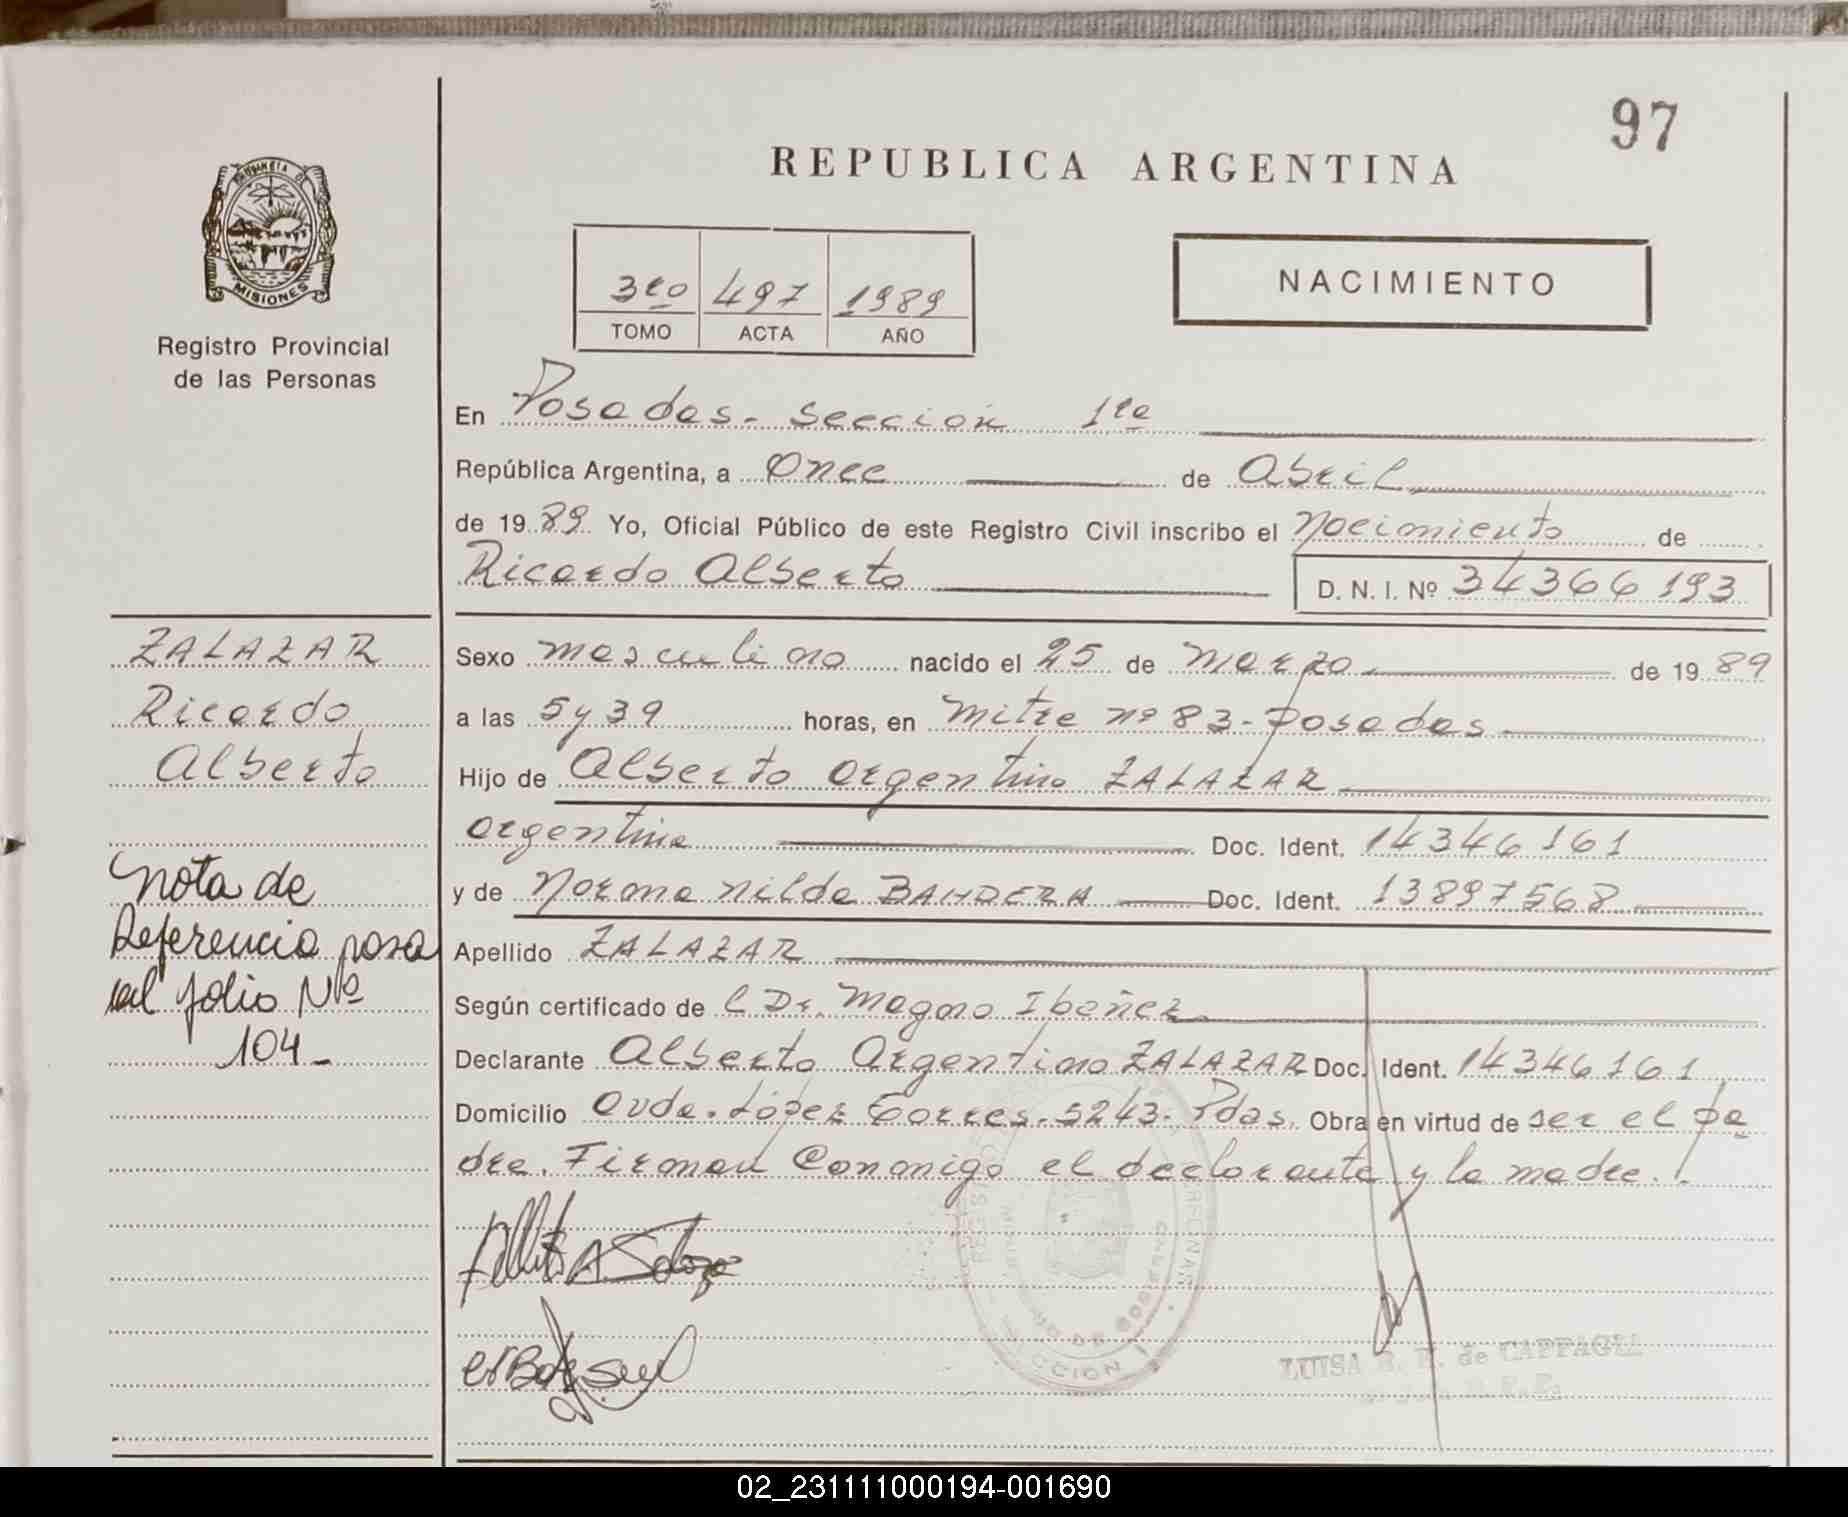 97
REPUBLICA ARGENTINA
MISIONES
Registro Provincial
de las Personas
3ro 497 1989
TOMO ACTA AÑO
NACIMIENTO
En Posadas - Sección 1ra
República Argentina, a Once de Abril
de 1989 Yo, Oficial Público de este Registro Civil inscribo el nacimiento de
Ricardo Alberto
D. N. I. Nº 34366193
ZALAZAR
Ricardo
Alberto
Sexo masculino nacido el 25 de Marzo de 1989
a las 5 y 39 horas, en Mitre nº 83 - Posadas
Hijo de Alberto Argentino ZALAZAR
argentino Doc. Ident. 14346161
y de Norma Nilda BANDERA Doc. Ident. 13897568
Nota de
Referencia pasa
al folio Nº
104 -
Apellido ZALAZAR
Según certificado de l Dr. Magno Ibañez
Declarante Alberto Argentino ZALAZAR Doc. Ident. 14346161
Domicilio Avda. López Torres - 5243 - Pdas. Obra en virtud de ser el pa
dre. Firman conmigo el declarante y la madre.
LUISA de CAPPAGLI
02_231111000194-001690